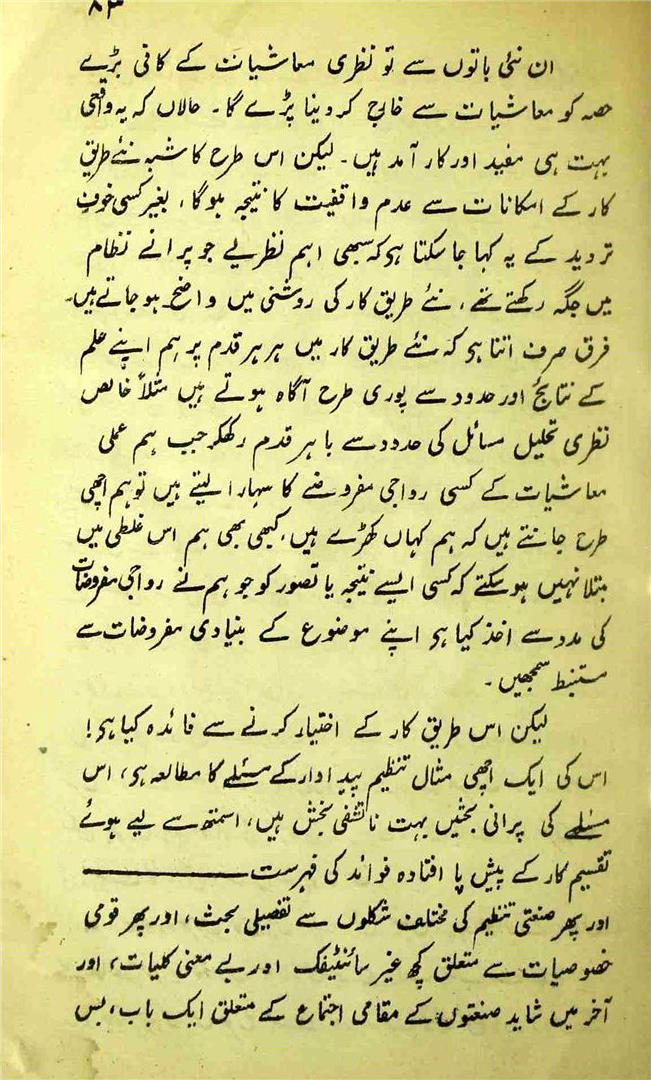 ۸۳
ان نئی باتوں سے تو نظری معاشیات کے کافی بڑے
حصہ کو معاشیات سے خارج کر دینا پڑے گا۔ حالاں کہ یہ واقعی
بہت ہی مفید اور کار آمد ہیں۔ لیکن اس طرح کا شبہ نئے طریق
کار کے امکانات سے عدم واقفیت کا نتیجہ ہوگا، بغیر کسی خوفِ
تردید کے یہ کہا جا سکتا ہی کہ سبھی اہم نظریے جو پرانے نظام
میں جگہ رکھتے تھے، نئے طریق کار کی روشنی میں واضح ہو جاتے ہیں۔
فرق صرف اتنا ہی کہ نئے طریق کار میں ہر ہر قدم پر ہم اپنے علم
کے نتائج اور حدود سے پوری طرح آگاہ ہوتے ہیں مثلاً خالص
نظری تحلیل مسائل کی حدود سے باہر قدم رکھکر جب ہم عملی
معاشیات کے کسی رواجی مفروضے کا سہارا لیتے ہیں تو ہم اچھی
طرح جانتے ہیں کہ ہم کہاں کھڑے ہیں، کبھی بھی ہم اس غلطی میں
مبتلا نہیں ہو سکتے کہ کسی ایسے نتیجہ یا تصور کو جو ہم نے رواجی مفروضات
کی مدد سے اخذ کیا ہی اپنے موضوع کے بنیادی مفروضات سے
مستنبط سمجھیں۔
لیکن اس طریق کار کے اختیار کرنے سے فائدہ کیا ہی!
اس کی ایک اچھی مثال تنظیم پیداوار کے مسئلے کا مطالعہ ہی، اس
مسئلے کی پرانی بحثیں بہت ناتشفی بخش ہیں، اسمتھ سے لیے ہوئے
تقسیم کار کے پیش پا افتادہ فوائد کی فہرست ———
اور پھر صنعتی تنظیم کی مختلف شکلوں سے تفصیلی بحث، اور پھر قومی
خصوصیات سے متعلق کچھ غیر سائنٹیفک اور بے معنی کلیات، اور
آخر میں شاید صنعتوں کے مقامی اجتماع کے متعلق ایک باب، بس